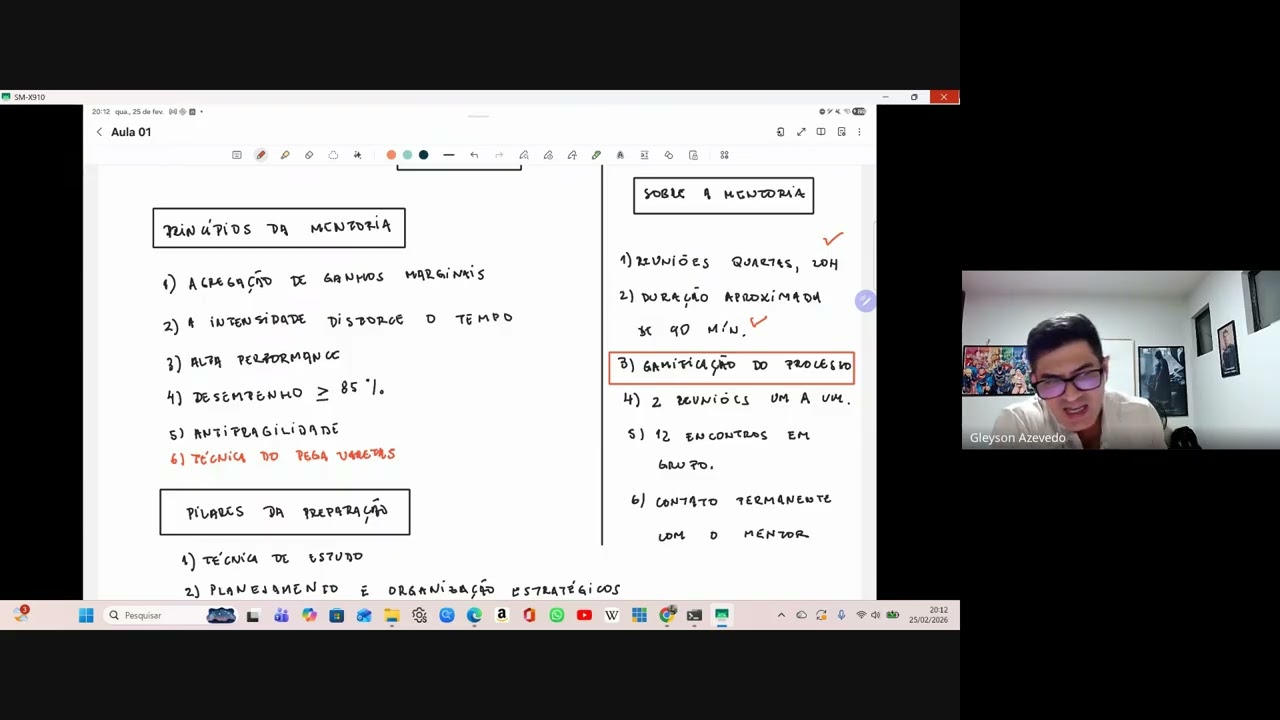 SM-X910
20:12 qua., 25 de fev.
Aula 01
PRINCÍPIOS DA MENTORIA
1) AGREGAÇÃO DE GANHOS MARGINAIS
2) A INTENSIDADE DISTORCE O TEMPO
3) ALTA PERFORMANCE
4) DESEMPENHO ≥ 85 %.
5) ANTIFRAGILIDADE
6) TÉCNICA DO PEGA VARETAS
PILARES DA PREPARAÇÃO
1) TÉCNICA DE ESTUDO
2) PLANEJAMENTO E ORGANIZAÇÃO ESTRATÉGICOS
SOBRE A MENTORIA
1) REUNIÕES QUARTAS, 20H
2) DURAÇÃO APROXIMADA
DE 90 MÍN.
3) GAMIFICAÇÃO DO PROCESSO
4) 2 REUNIÕES UM A UM.
5) 12 ENCONTROS EM
GRUPO.
6) CONTATO PERMANENTE
COM O MENTOR
Gleyson Azevedo
3
Pesquisar
20:12
25/02/2026